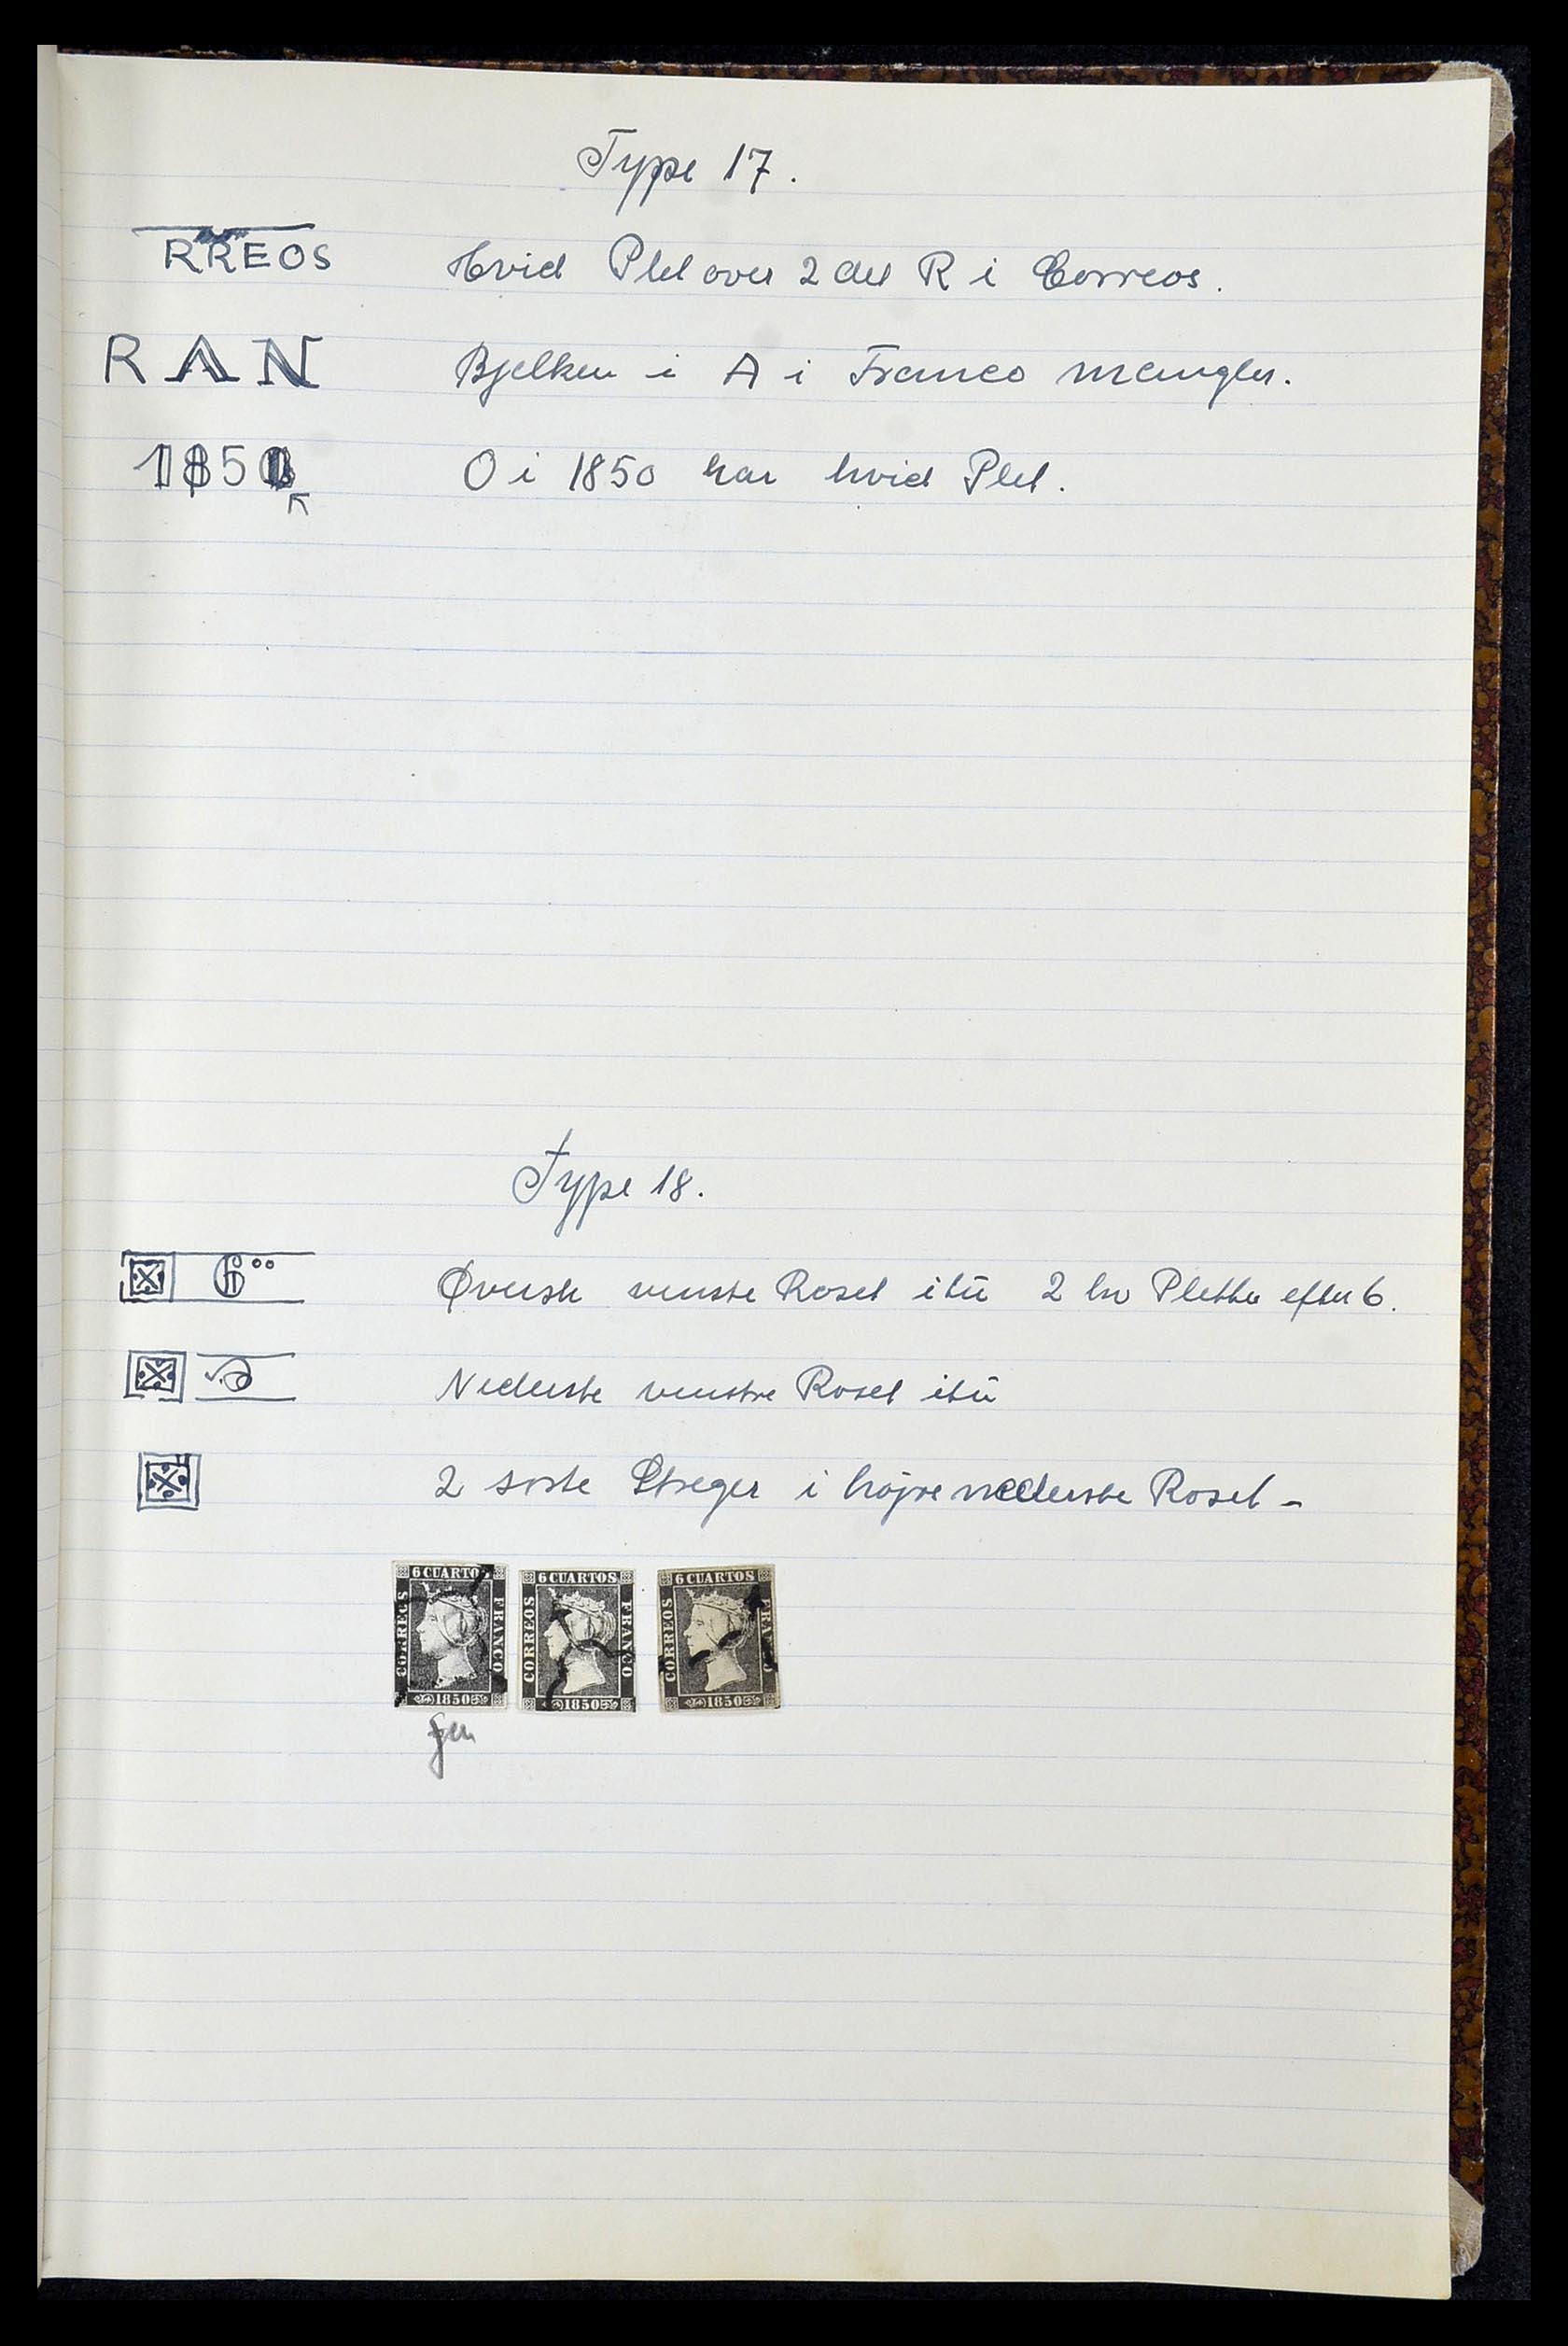 Type 17.
RREOS Hvid Plet over 2det R i Correos.
RAN Bjelken i A i Franco mangler.
1850 O i 1850 har hvid Plet.
Type 18.
6°° Øverste venstre Roset itu 2 hv Pletter efter 6.
Nederste venstre Roset itu
2 sorte Streger i højre nederste Roset -
6 CUARTOS
CORREOS
FRANCO
1850
6 CUARTOS
CORREOS
FRANCO
1850
6 CUARTOS
CORREOS
FRANCO
1850